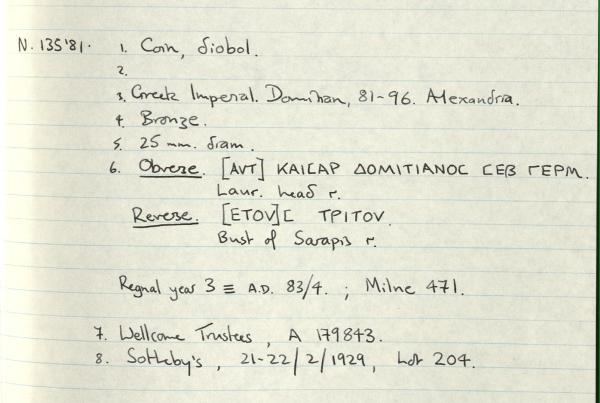 N. 135'81. 1. Coin, diobol.
2.
3. Greek Imperial. Domitian, 81-96. Alexandria.
4. Bronze.
5. 25 mm. diam.
6. Obverse. [ΑVΤ] ΚΑΙϹΑΡ ΔΟΜΙΤΙΑΝΟϹ ϹΕΒ ΓΕΡΜ.
Laur. head r.
Reverse. [ΕΤΟV]Ϲ ΤΡΙΤΟV.
Bust of Sarapis r.
Regnal year 3 ≡ A.D. 83/4. ; Milne 471.
7. Wellcome Trustees, A 179843.
8. Sotheby's, 21-22/2/1929, Lot 204.